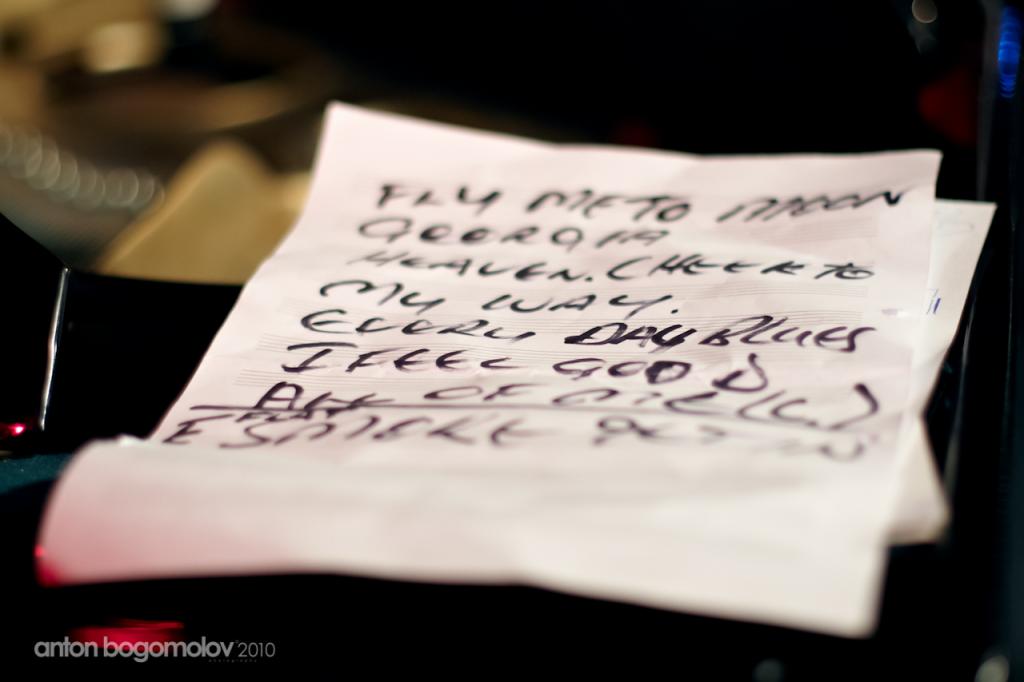 FLY ME TO MOON
GEORGIA
HEAVEN. CHEEK TO
MY WAY.
EVERY DAY BLUES
I FEEL GOOD
ALL OF ME (C)
anton bogomolov 2010
photography